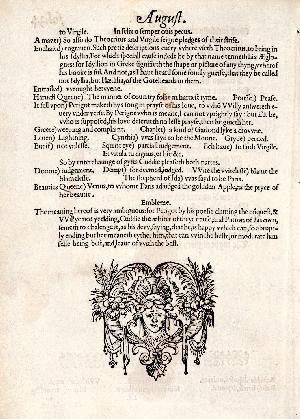 August.
to Virgile. In felix o semper ouis pecus.
A mazer) So also do Theocritus and Virgile feigne pledges of their strife.
Enchased) engrauen. Such pretie descriptions euery where vseth Theocritus, to bring in
his Idyllia. For which speciall cause indede he by that name termeth his Æglo-
gues: for Idyllion in Greke signifieth the shape or picture of any thyng, wherof
his booke is ful. And not, as I haue heard some fondly guesse, that they be called
not Idyllia, but Hædilia, of the Goteheards in them.
Entrailed) wrought betwene.
Haruest Queene) The manner of country folke in haruest tyme. Pousse) Pease.
It fell vpon) Perigot maketh hys song in prayse of his loue, to whō VVilly answereth e-
uery vnder verse. By Perigot who is meant, I can not vprightly say: but if it be,
who is supposed, his loue deserueth no lesse prayse, then he giueth her.
Greete) weeping and complaint. Chaplet) a kind of Garlond lyke a crowne.
Leuen) Lightning. Cynthia) was sayd to be the Moone. Gryde) perced.
But if) not vnlesse. Squint eye) partiall iudgement. Ech haue) so saith Virgile.
Et vitula tu dignus, et hic &c.
So by enterchaunge of gyfts Cuddie pleaseth both partes.
Doome) iudgement. Dempt) for deemed, iudged. VVite the witelesse) blame the
blamelesse. The shepherd of Ida) was sayd to be Paris.
Beauties Queene) Venus, to whome Paris adiudged the golden Apple, as the pryce of
her beautie.
Embleme.
The meaning hereof is very ambiguous: for Perigot by his poesie claming the cōquest, &
VVillye not yeelding, Cuddie the arbiter of theyr cause, and Patron of his own,
semeth to chalenge it, as his dew, saying, that he, is happy which can, so abrupt-
ly ending but hee meaneth eyther him, that can win the beste, or moderate him
selfe being best, and leaue of with the best.